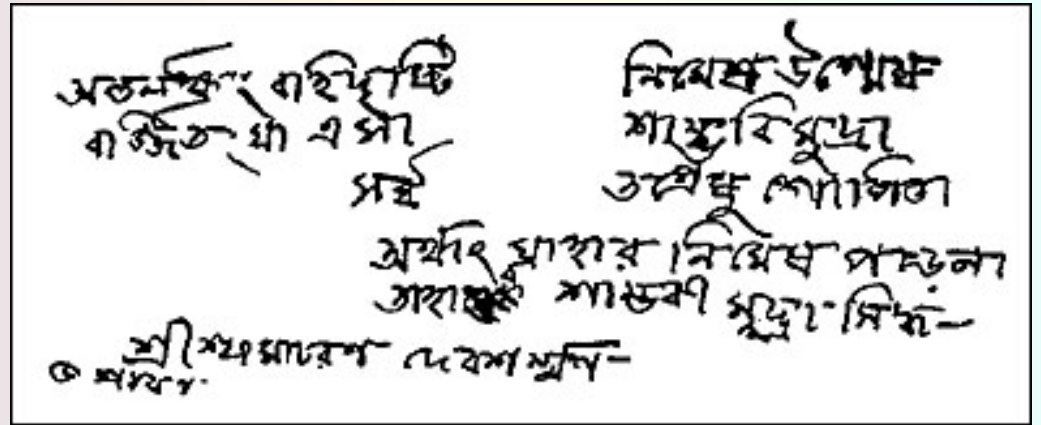 বহির্দৃষ্টি নিমেষ উন্মেষ
এ সা শাম্ভবি মুদ্রা
সর্ব্ব তন্ত্রেষু গোপিতা
অর্থাৎ যাহার নিমেষ পড়েনা
শাম্ভবী মুদ্রা সিদ্ধ-
শ্রীশ্যামাচরণ দেবশর্ম্মণ-